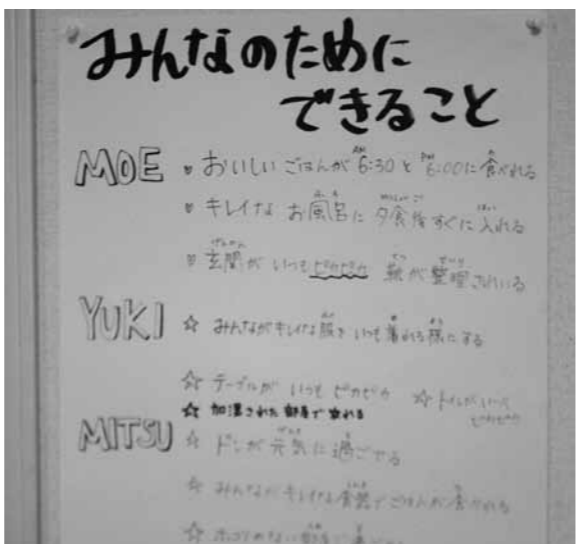 みんなのために
できること
MOE ・おいしいごはんがAM6:30とPM6:00に食べれる
・キレイなお風呂に夕食後すぐに入れる
・玄関がいつもピカピカ 靴が整理されている
YUKI ☆ みんながキレイな服をいつも着れる様にする
☆ テーブルがいつもピカピカ ☆ トイレがいつも
ピカピカ
☆ 加湿された部屋で寝れる
MITSU ☆ ドンが元気に過ごせる
☆ みんながキレイな食器でごはんが食べれる
☆ ホコリのない部屋で